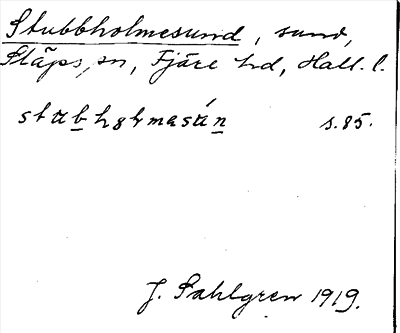 Stubbholmesund, sund,
Släps sn, Fjäre hd, Hall. l.
s.85.
J. Sahlgren 1919.